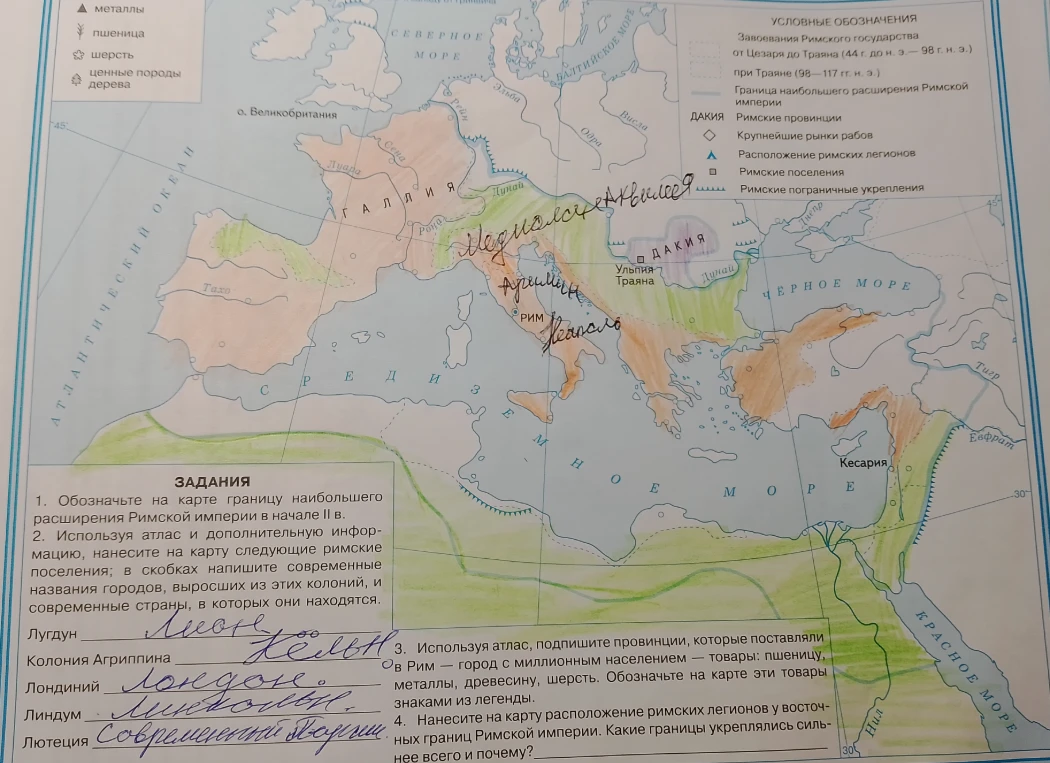 металлы
пшеница
шерсть
ценные породы
дерева
УСЛОВНЫЕ ОБОЗНАЧЕНИЯ
Завоевания Римского государства
от Цезаря до Траяна (44 г. до н. э.— 98 г. н. э.)
при Траяне (98—117 гг. н. э.)
Граница наибольшего расширения Римской
империи
ДАКИЯ Римские провинции
Крупнейшие рынки рабов
Расположение римских легионов
Римские поселения
Римские пограничные укрепления
СЕВЕРНОЕ
МОРЕ
БАЛТИЙСКОЕ МОРЕ
о. Великобритания
45°
АТЛАНТИЧЕСКИЙ ОКЕАН
Рейн
Эльба
Одра
Висла
Сена
Луара
ГАЛЛИЯ
Рона
Дунай
Аквилея
ДАКИЯ
Ульпия
Траяна
Дунай
Днепр
45°
ЧЁРНОЕ МОРЕ
Тахо
Аримин
РИМ
Неаполь
СРЕДИЗЕМНОЕ МОРЕ
Тигр
Евфрат
Кесария
30°
КРАСНОЕ МОРЕ
Нил
30°
ЗАДАНИЯ
1. Обозначьте на карте границу наибольшего
расширения Римской империи в начале II в.
2. Используя атлас и дополнительную инфор-
мацию, нанесите на карту следующие римские
поселения; в скобках напишите современные
названия городов, выросших из этих колоний, и
современные страны, в которых они находятся.
Лугдун Лион
Колония Агриппина Кёльн
Лондиний Лондон.
Линдум Линкольн.
Лютеция Современный Париж.
3. Используя атлас, подпишите провинции, которые поставляли
в Рим — город с миллионным населением — товары: пшеницу,
металлы, древесину, шерсть. Обозначьте на карте эти товары
знаками из легенды.
4. Нанесите на карту расположение римских легионов у восточ-
ных границ Римской империи. Какие границы укреплялись силь-
нее всего и почему?